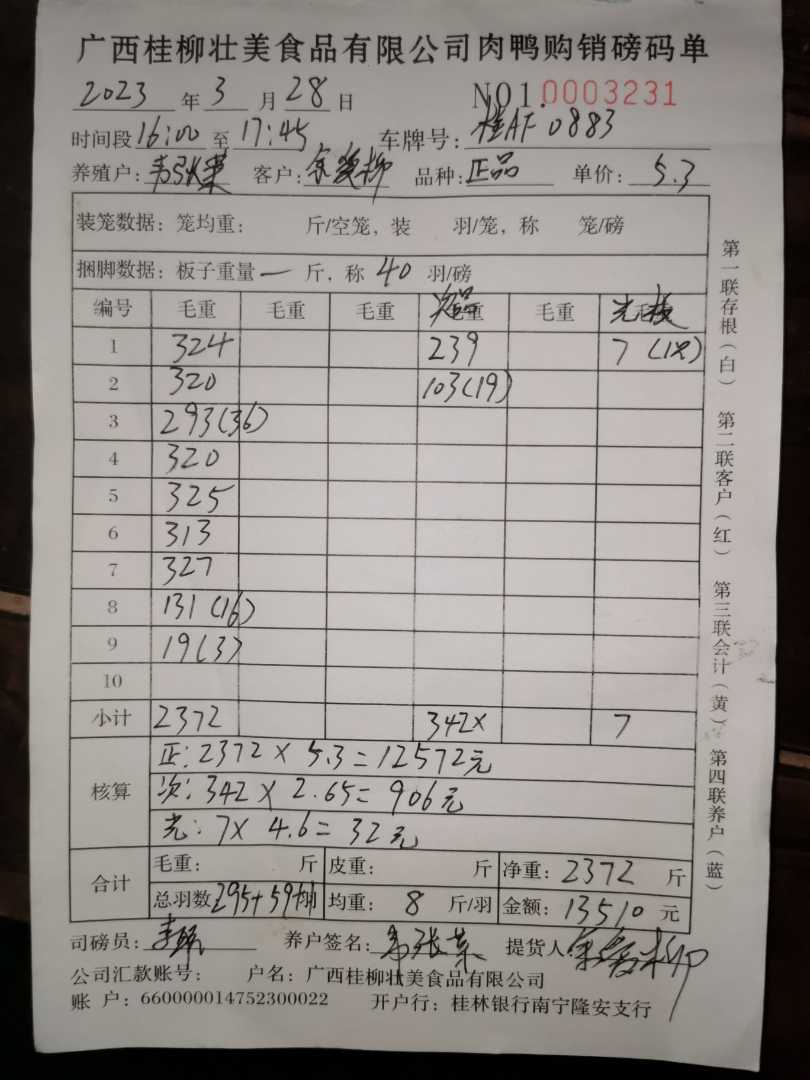 广西桂柳壮美食品有限公司肉鸭购销磅码单
2023 年 3 月 28 日 NO1.0003231
时间段 16:00 至 17:45 车牌号: 桂AF0883
养殖户: 韦张荣 客户: 品种: 正品 单价: 5.3
装笼数据: 笼均重: 斤/空笼, 装 羽/笼, 称 笼/磅
捆脚数据: 板子重量 一 斤, 称 40 羽/磅
编号 毛重 毛重 毛重 毛重 毛重
1 324 239 7
2 320 103(19)
3 293(36)
4 320
5 325
6 313
7 327
8 131(16)
9 19(3)
10
小计 2372 342 7
核算
正: 2372 X 5.3 = 12572元
次: 342 X 2.65 = 906元
光: 7X 4.6 = 32元
合计
毛重: 斤 皮重: 斤 净重: 2372 斤
总羽数 295+59 均重: 8 斤/羽 金额: 13510 元
司磅员: 养户签名: 韦张荣 提货人:
公司汇款账号: 户名: 广西桂柳壮美食品有限公司
账 户: 660000014752300022 开户行: 桂林银行南宁隆安支行
第一联存根(白) 第二联客户(红) 第三联会计(黄) 第四联养户(蓝)